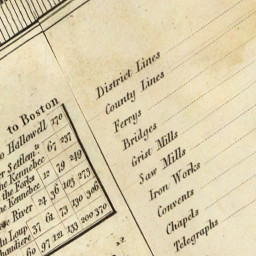 to Boston
Hallowell 270
Settlem.ts 67 237
the Kennebec 12 79 249
the Forks
Kennebec 24 36 103 273
River 37 61 73 130 306
Loup 60 97 121 133 200 370
District Lines
County Lines
Ferrys
Bridges
Grist Mills
Saw Mills
Iron Works
Convents
Chapels
Telegraphs